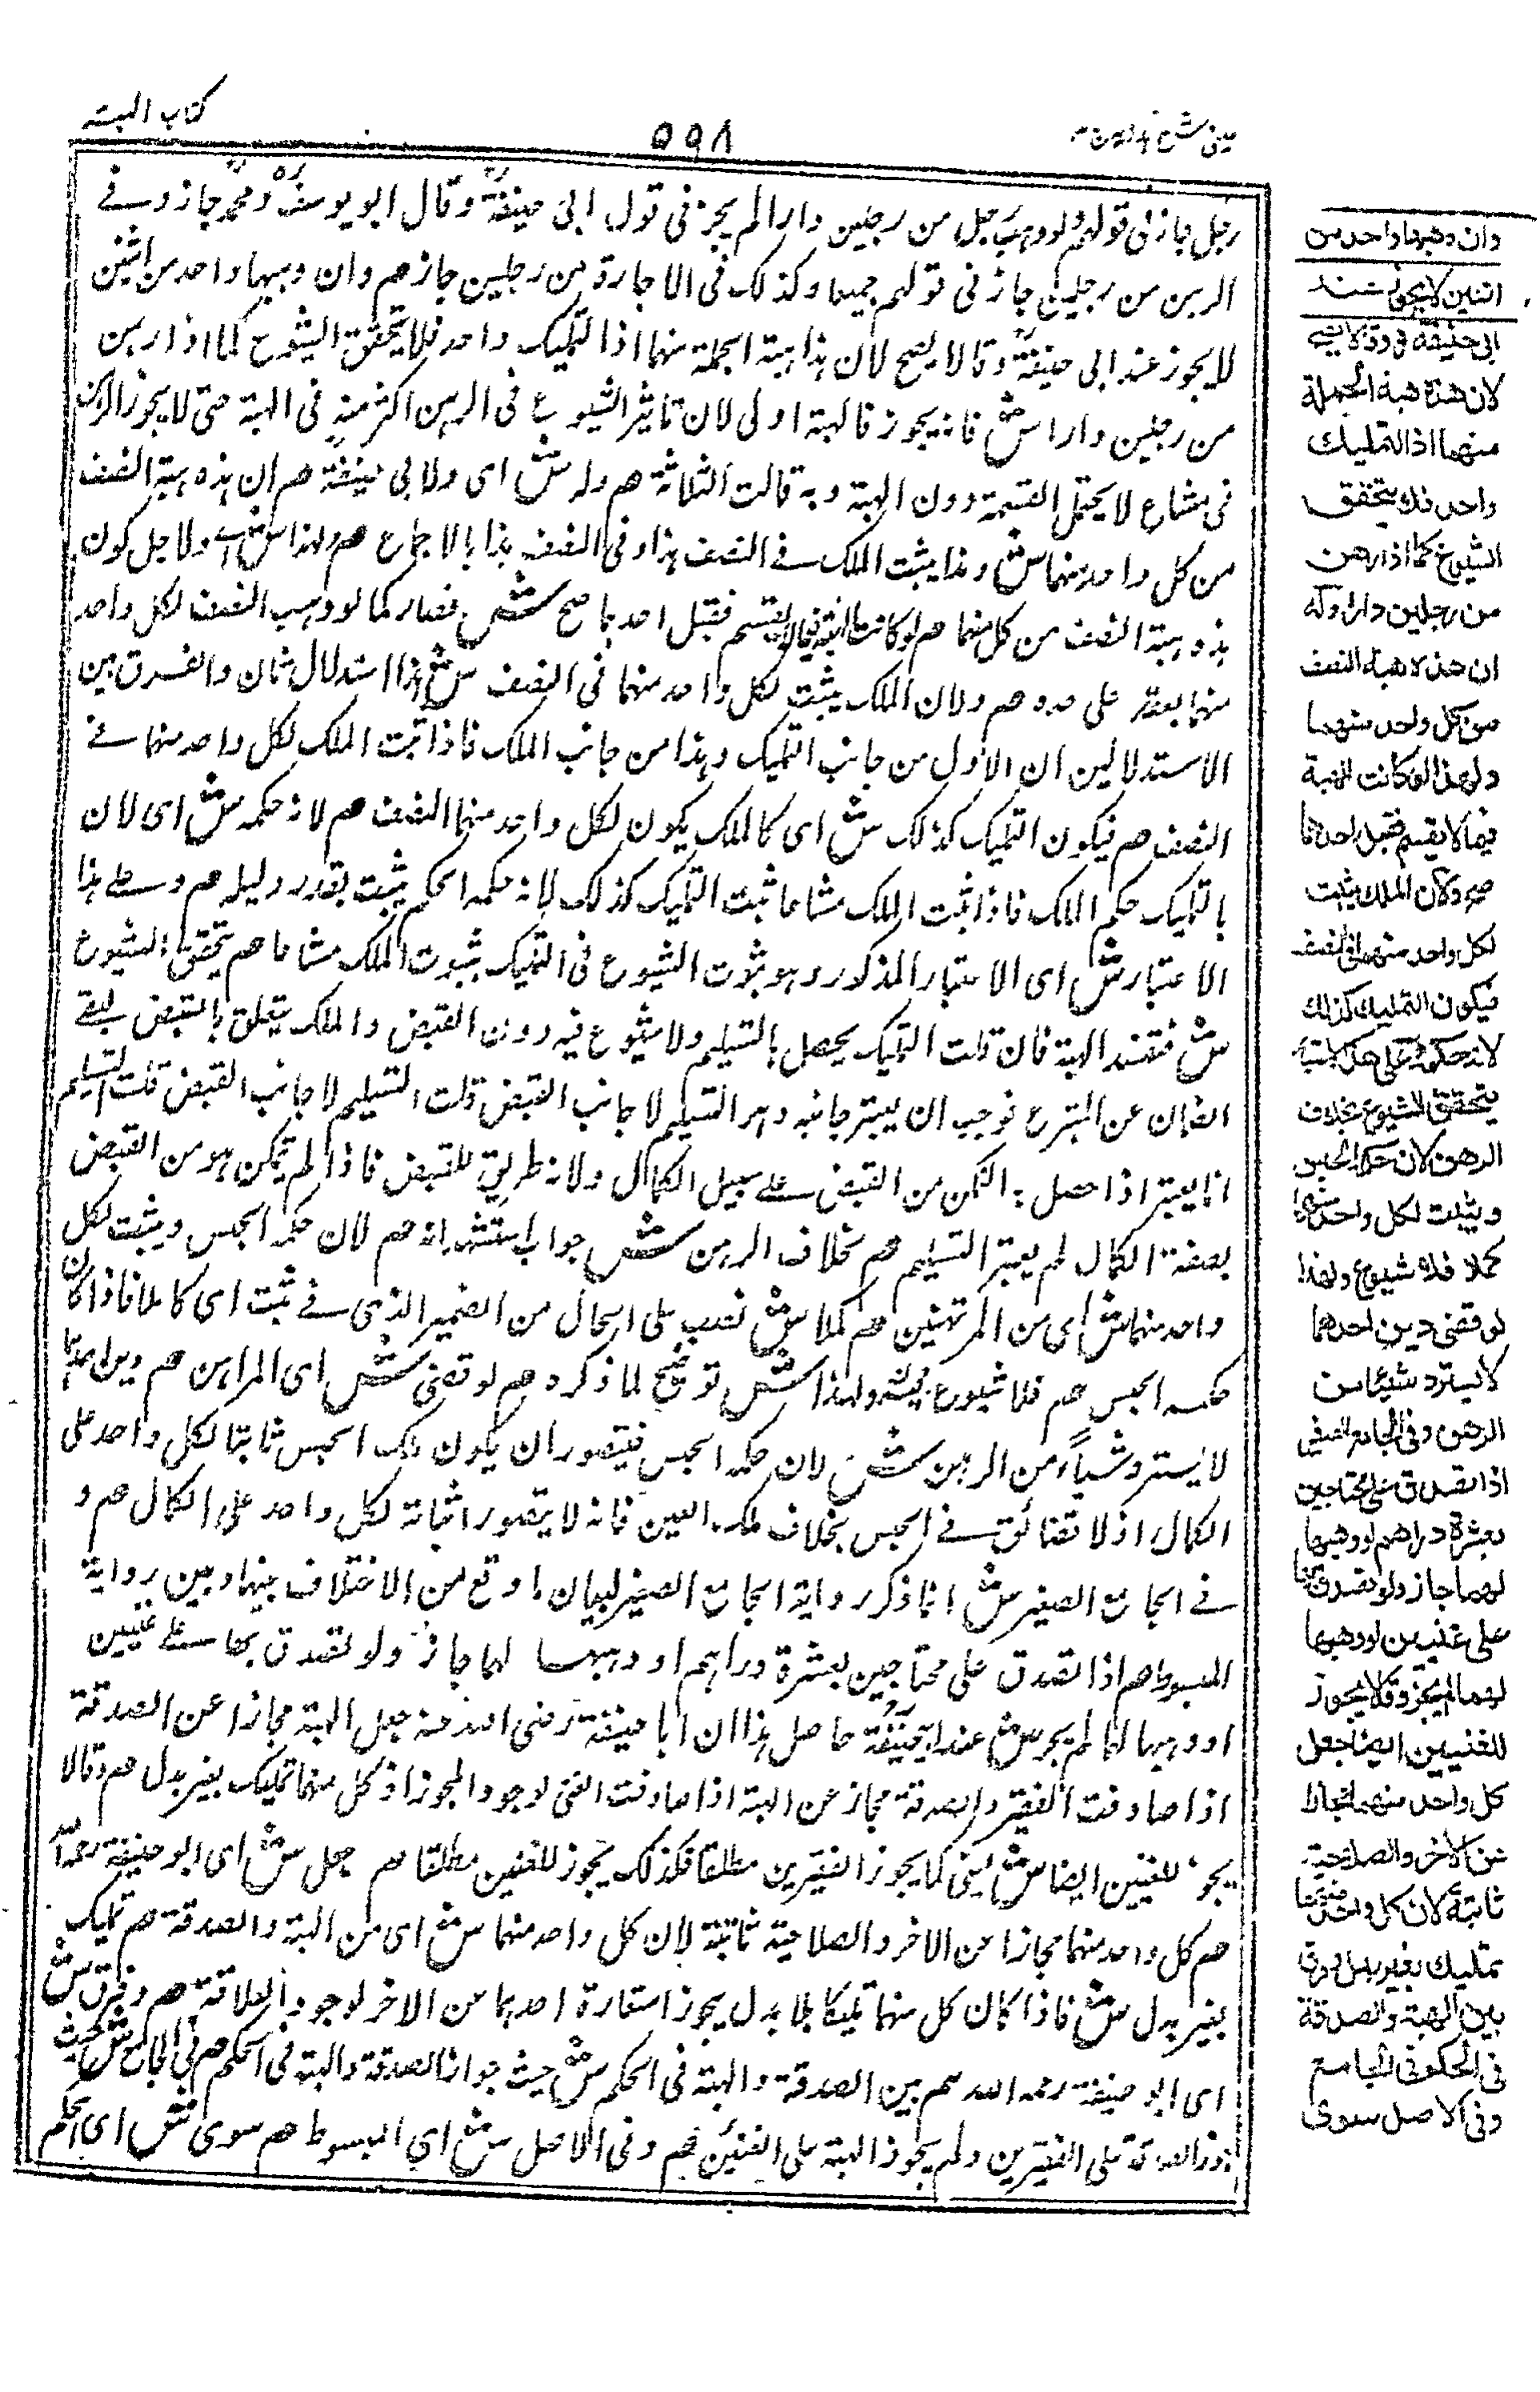 عینی شرح هدایة ج ٣
٥٩٨
كتاب الهبة
رجل جاز في قولهم ولو وهب رجل من رجلين دارا لم يجز في قول ابي حنيفة وقال ابو يوسف ومحمد جاز وفي
الرهن من رجلين جاز في قولهم جميعا وكذلك في الاجارة من رجلين جاز هم وان وهبها واحد من اثنين
لا يجوز عند ابي حنيفة وقالا يصح لان هذا هبة الجملة منهما اذا التمليك واحد فلا يتحقق الشيوع كما اذا رهن
من رجلين دارا ش فانه يجوز فالهبة اولى لان تاثير الشيوع في الرهن اكثر منه في الهبة حتى لا يجوز الرهن
في مشاع لا يحتمل القسمة دون الهبة وبه قالت الثلاثة هم وله ش اى ولابي حنيفة هم ان هذه هبة النصف
من كل واحد منهما ش ولذا يثبت الملك في النصف هذا وفي النصف هذا بالاجماع هم ولهذا ش اى ولاجل كون
هذه هبة النصف من كل منهما هم لو كانت الهبة فيما لا يقسم فقبل احدهما صح ش فصار كما لو وهب النصف لكل واحد
منهما بعقد على حده هم ولان الملك يثبت لكل واحد منهما في النصف ش هذا استدلال ثان والفرق بين
الاستدلالين ان الاول من جانب التمليك وهذا من جانب الملك فاذا ثبت الملك لكل واحد منهما في
النصف هم فيكون التمليك كذلك ش اى كالملك يكون لكل واحد منهما النصف هم لانه حكمه ش اى لان
بالتمليك حكم الملك فاذا ثبت الملك مشاعا ثبت التمليك كذلك لانه حكمه الحكم يثبت بقدر دليله هم وعلى هذا
الاعتبار ش اى الاعتبار المذكور وهو ثبوت الشيوع في التمليك بثبوت الملك مشاعا هم يتحقق الشيوع
ش فتفسد الهبة فان قلت التمليك يحصل بالتسليم ولا شيوع فيه دون القبض والملك يتعلق بالقبض لينفى
الضمان عن المتبرع فوجب ان يعتبر جانبه وهو التسليم لا جانب القبض قلت التسليم لا جانب القبض قلت التسليم
انما يعتبر اذا حصل به التمكن من القبض على سبيل الكمال ولانه طريق للقبض فاذا لم يتمكن هو من القبض
بصفة الكمال لم يعتبر التسليم هم بخلاف الرهن ش جواب استشهدانه هم لان حكمه الحبس ويثبت لكل
واحد منهما ش اى من المرتهنين هم كملا ش نصب على الحال من الضمير الذى في ثبت اى كاملا فاذا كان
حكمه الحبس هم فلا شيوع فيه ولهذا ش توضيح لما ذكره هم لو قضى ش اى الراهن هم دين احدهما
لا يسترد شيأ من الرهن ش لان حكمه الحبس فيتصور ان يكون ملك الحبس ثابتا لكل واحد على
الكمال اذ لا تضائق في الحبس بخلاف ملك العين فانه لا يتصور اثباته لكل واحد على الكمال هم و
في الجامع الصغير ش انما ذكر رواية الجامع الصغير لبيان ما وقع من الاختلاف بينها وبين رواية
المبسوط هم اذا تصدق على محتاجين بعشرة دراهم او وهبها لهما جاز ولو تصدق بها على غنيين
او وهبها لهما لم يجز ش عند ابي حنيفة حاصل هذا ان ابا حنيفة رضى الله عنه جعل الهبة مجازا عن الصدقة
اذا صادفت الفقير والصدقة مجاز عن الهبة اذا صادفت الغنى لوجود المجوز اذ كل منهما تمليك بغير بدل هم وقالا
يجوز للغنيين ايضا ش يعنى كما يجوز الفقيرين مطلقا فكذلك يجوز للغنيين مطلقا هم جعل ش اى ابو حنيفة رحمه الله
هم كل واحد منهما مجازا عن الاخر والصلاحية ثابتة لان كل واحد منهما ش اى من الهبة والصدقة هم تمليك
بغير بدل ش فاذا كان كل منهما تمليكا بلا بدل يجوز استعارة احدهما عن الاخر لوجود العلاقة هم وفرق ش
اى ابو حنيفة رحمه الله هم بين الصدقة والهبة في الحكم ش حيث جواز الصدقة والهبة في الحكم هم في الجامع ش حيث
جوز الصدقة على الفقيرين ولم يجوز الهبة على الغنيين هم وفي الاصل ش اي المبسوط هم سوى ش اى الحكم
وان وهبها واحد من
اثنين لا يجوز عند
ابي حنيفة وقالا يصح
لان هذه هبة الجملة
منهما اذا التمليك
واحد فلا يتحقق
الشيوع كما اذا رهن
من رجلين دارا وله
ان هذه هبة النصف
من كل واحد منهما
ولهذا لو كانت الهبة
فيما لا يقسم فقبل احدهما
صح ولان الملك يثبت
لكل واحد منهما في النصف
فيكون التمليك كذلك
لانه حكمه وعلى هذا الاعتبار
يتحقق الشيوع بخلاف
الرهن لان حكمه الحبس
ويثبت لكل واحد منهما
كملا فلا شيوع ولهذا
لو قضى دين احدهما
لا يسترد شيئا من
الرهن وفي الجامع الصغير
اذا تصدق على محتاجين
بعشرة دراهم او وهبها
لهما جاز ولو تصدق بها
على غنيين او وهبها
لهما لم يجز وقالا يجوز
للغنيين ايضا جعل
كل واحد منهما مجازا
عن الاخر والصلاحية
ثابتة لان كل واحد منهما
تمليك بغير بدل وفرق
بين الهبة والصدقة
في الحكم في الجامع
وفي الاصل سوى